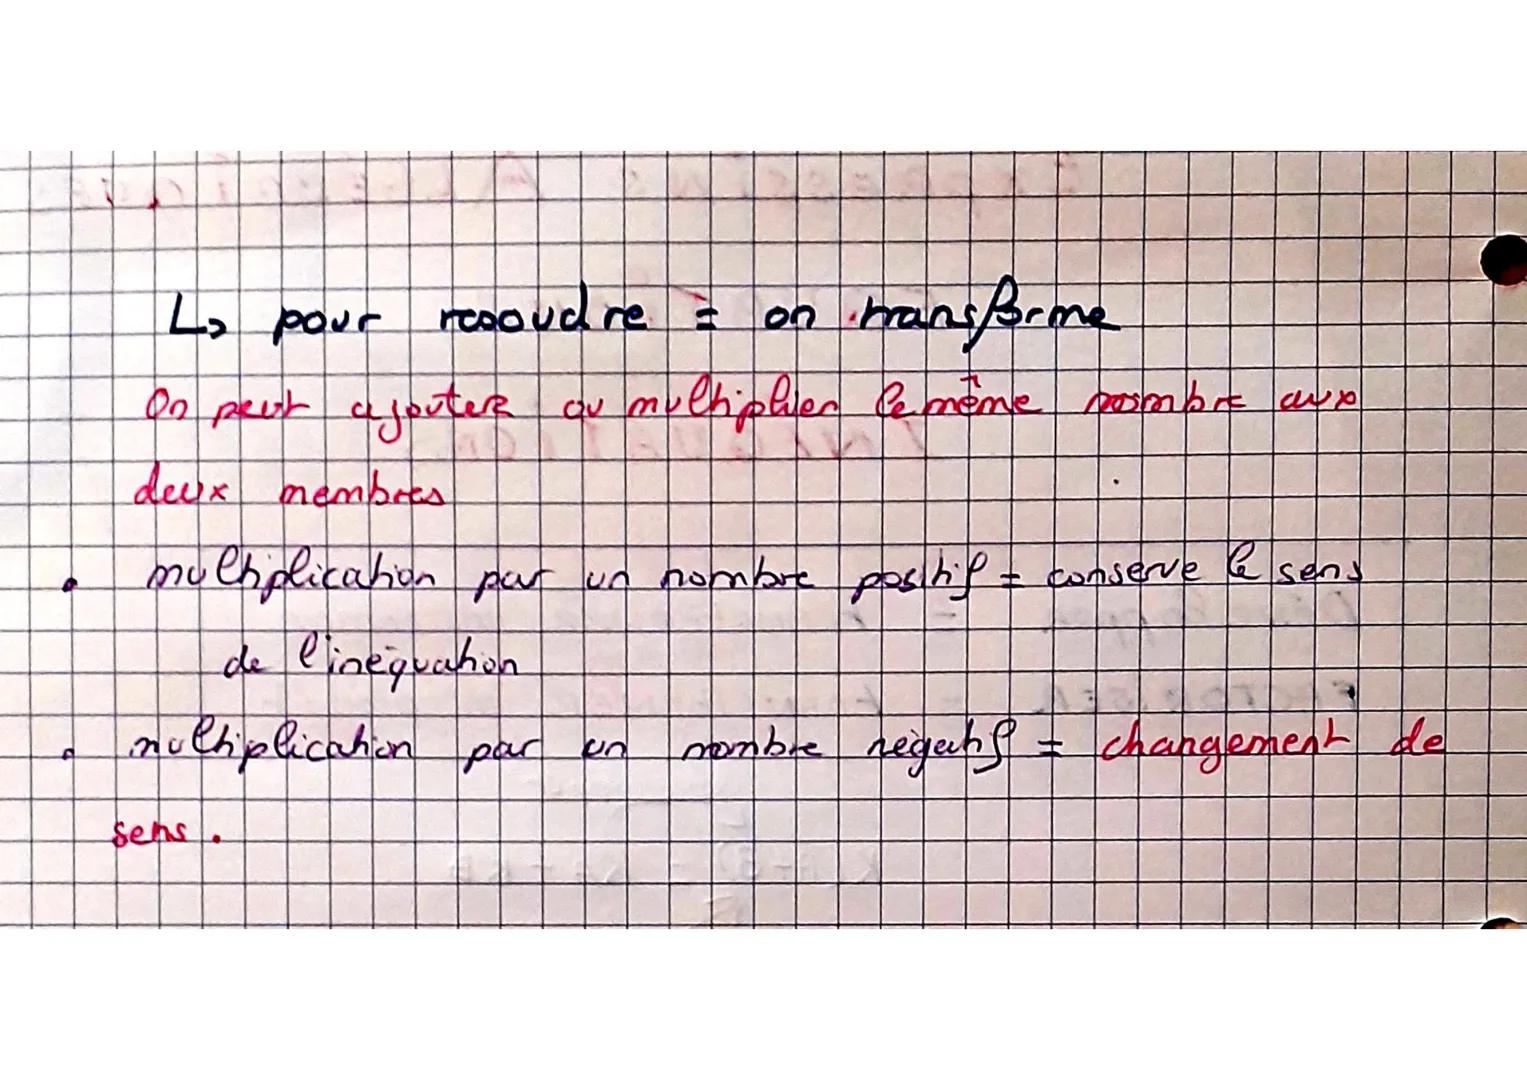 ↳ pour resoudre = on transforme
On peut ajouter ou multiplier le même nombre aux
deux membres
• multiplication par un nombre positif = conserve le sens
de l'inéquation
• multiplication par un nombre négatif = changement de
sens.